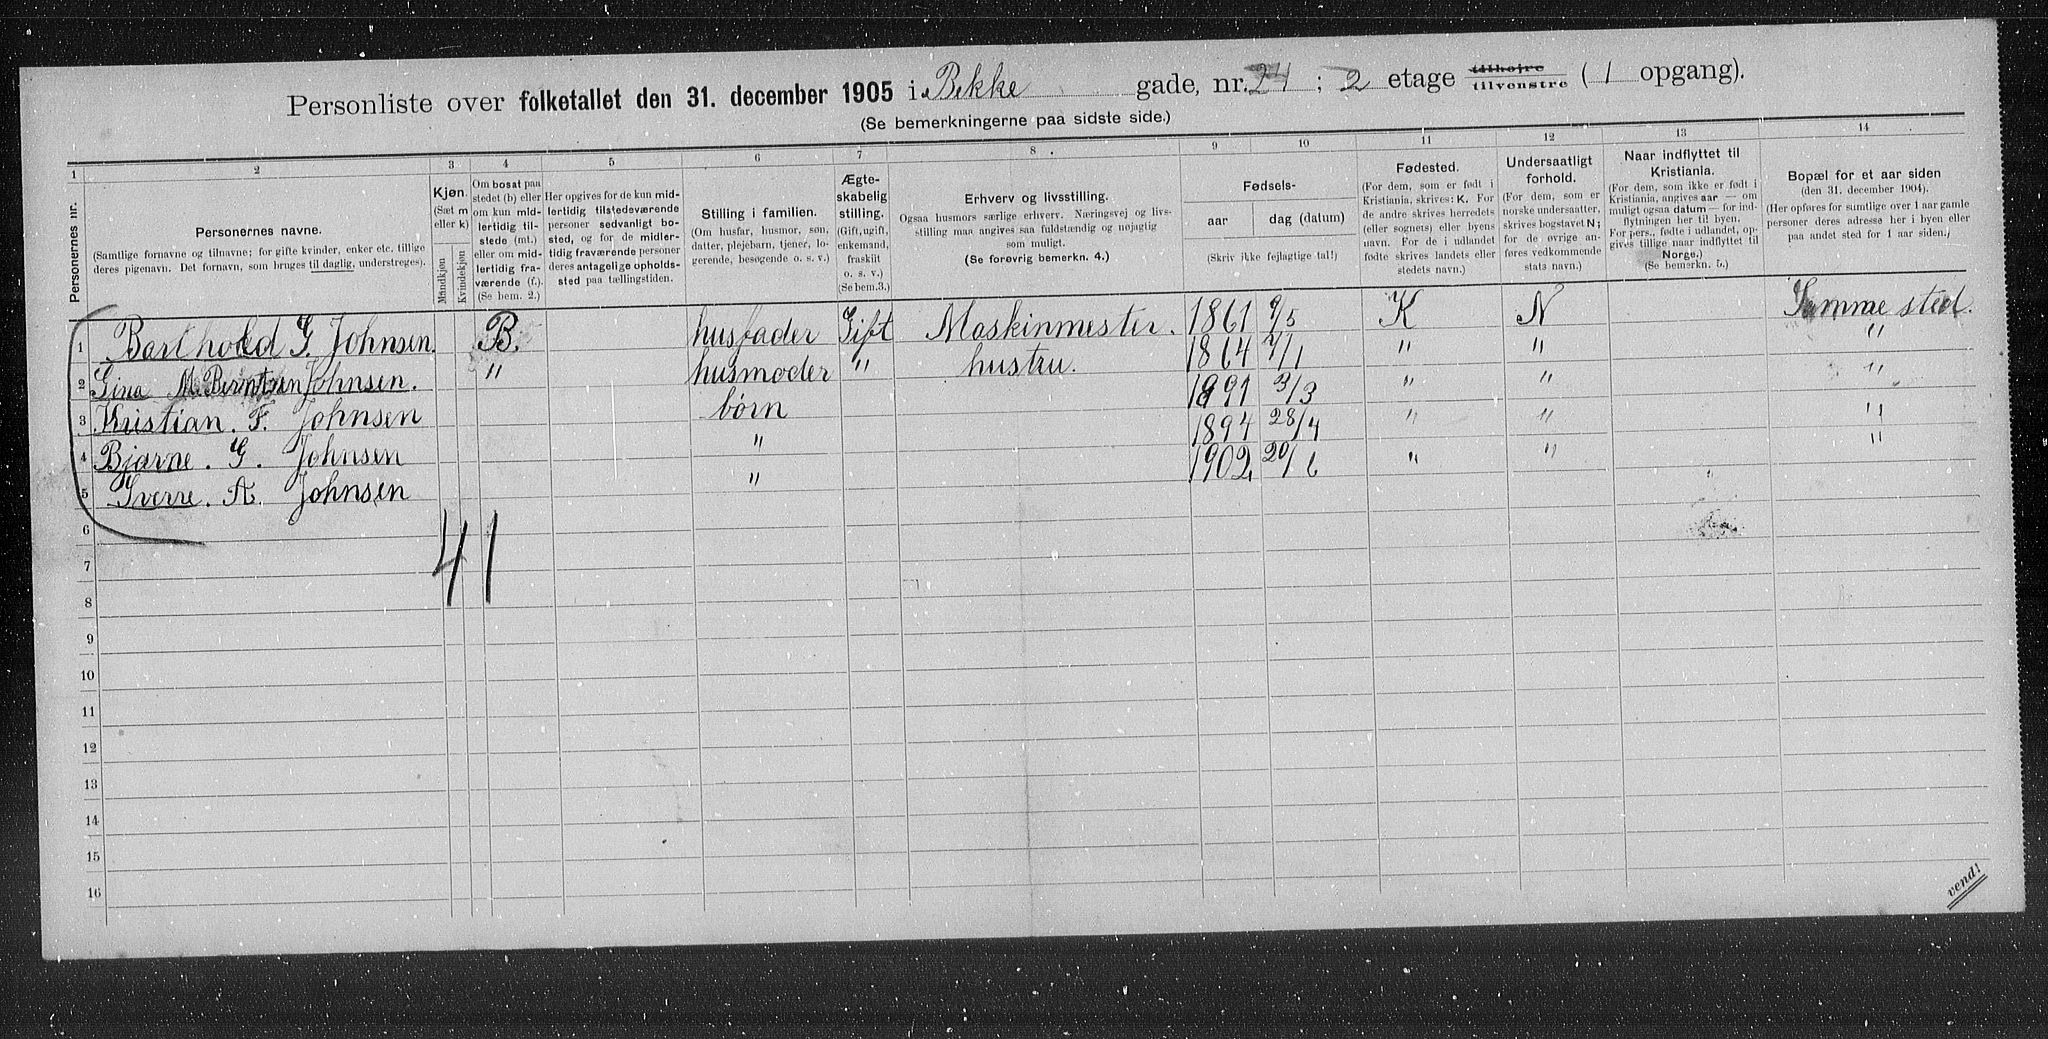 Personliste over folketallet den 31. december 1905 i Bekke gade, nr. 24 ; 2 etage tilhøjre tilvenstre ( 1 opgang).
(Se bemerkningerne paa sidste side.)
1 2 3 4 5 6 7 8 9 10 11 12 13 14
Personernes nr.
Personernes navne.
(Samtlige fornavne og tilnavne; for gifte kvinder, enker etc. tillige
deres pigenavn. Det fornavn, som bruges til daglig, understreges).
Kjøn.
(Sæt m
eller k)
Mandkjøn
Kvindekjøn
Om bosat paa
stedet (b) eller
om kun mid-
lertidig til-
stede (mt.)
eller om mid-
lertidig fra-
værende (f.).
(Se bem. 2.)
Her opgives for de kun mid-
lertidig tilstedeværende
personer sedvanligt bo-
sted, og for de midler-
tidig fraværende personer
deres antagelige opholds-
sted paa tællingstiden.
Stilling i familien.
(Om husfar, husmor, søn,
datter, plejebarn, tjener, lo-
gerende, besøgende o. s. v.)
Ægte-
skabelig
stilling.
(Gift, ugift,
enkemand,
fraskilt
o. s. v.)
(Se bem.3.)
Erhverv og livsstilling.
Ogsaa husmors særlige erhverv. Næringsvej og livs-
stilling maa angives saa fuldstændig og nøjagtig
som muligt.
(Se forøvrig bemerkn. 4.)
Fødsels-
aar
dag (datum)
(Skriv ikke fejlagtige tal!)
Fødested.
(For dem, som er født i
Kristiania, skrives: K. For
de andre skrives herredets
(eller sognets) eller byens
navn. For de i udlandet
fødte skrives landets eller
stedets navn.)
Undersaatligt
forhold.
(For dem, som er
norske undersaatter,
skrives bogstavet N;
for de øvrige an-
føres vedkommende
stats navn.)
Naar indflyttet til
Kristiania.
(For dem, som ikke er født i
Kristiania, angives aar — om
muligt ogsaa datum — for ind-
flytningen her til byen.
For pers., fødte i udlandet, op-
gives tillige naar indflyttet til
Norge.)
(Se bemerkn. 5.)
Bopæl for et aar siden
(den 31. december 1904).
(Her opføres for samtlige over 1 aar gamle
personer deres adresse her i byen eller
paa andet sted for 1 aar siden.)
1 Barthold G. Johnsen. B. husfader Gift Maskinmester. 1861 9/5 K N Samme sted.
2 Gina M. Berntsen Johnsen. " husmoder " hustru. 1864 7/1 " " "
3 Kristian. F. Johnsen børn 1891 3/3 " " "
4 Bjarne. G. Johnsen " 1894 28/4 " " "
5 Sverre. A. Johnsen " 1902. 20/6 " " "
6
41
7
8
9
10
11
12
13
14
15
16
vend!